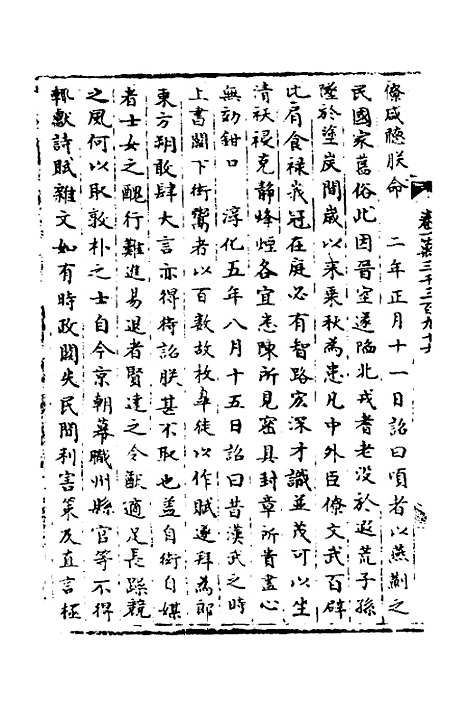 卷一萬三千三百九十六
僚咸聽朕命　二年正月十一日詔曰頃者以燕薊之
民國家舊俗比因晉室遂陷北戎耆老没於遐荒子孫
墜於塗炭間歲以來乘秋為患凡中外臣僚文武百辟
比肩食禄峩冠在庭必有智路宏深才識並茂可以生
清祅祲克静烽煙各宜悉陳所見密具封章所貴盡心
無効鉗口　淳化五年八月十五日詔曰昔漢武之時
上書闕下衒鬻者以百數故枚皐徒以作賦遂拜為郎
東方朔敢肆大言亦得待詔朕甚不取也蓋自衒自媒
者士女之醜行難進易退者賢達之令猷適足長躁競
之風何以取敦朴之士自今京朝幕職州縣官等不得
輒獻詩賦雜文如有時政闕失民間利害策及直言極